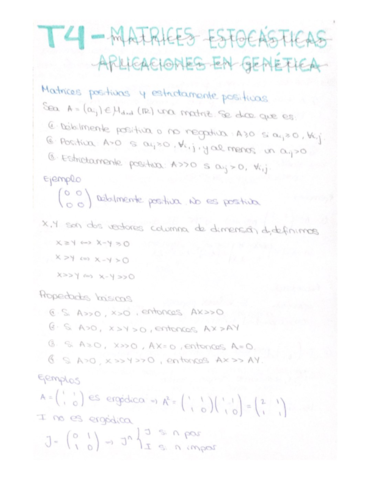 T4 - MATRICES ESTOCÁSTICAS
APLICACIONES EN GENÉTICA
Matrices positivas y estrictamente positivas
Sea A = (aij) ∈ Mdxd (R) una matriz. Se dice que es
Débilmente positiva o no negativa A≥0 si aij≥0, ∀i,j
Positiva A>0 si aij≥0, ∀i,j, y al menos un aij>0
Estrictamente positiva A>>0 si aij>0, ∀i,j
Ejemplo
(0 0
0 0) Débilmente positiva No es positiva
X, Y son dos vectores columna de dimensión d, definimos
X≥Y ⟺ X-Y≥0
X>Y ⟺ X-Y>0
X>>Y ⟺ X-Y>>0
Propiedades básicas
Si A>>0, X>0, entonces AX>>0
Si A>0, X≥Y≥0, entonces AX≥AY
Si A≥0, X>>0, AX=0, entonces A=0.
Si A>0, X>>Y>>0, entonces AX>>AY
Ejemplos
A = (1 1
1 0) es ergódica → A² = (1 1
1 0)(1 1
1 0) = (2 1
1 1)
I no es ergódica
J = (0 1
1 0) → Jⁿ { J si n par
I si n impar